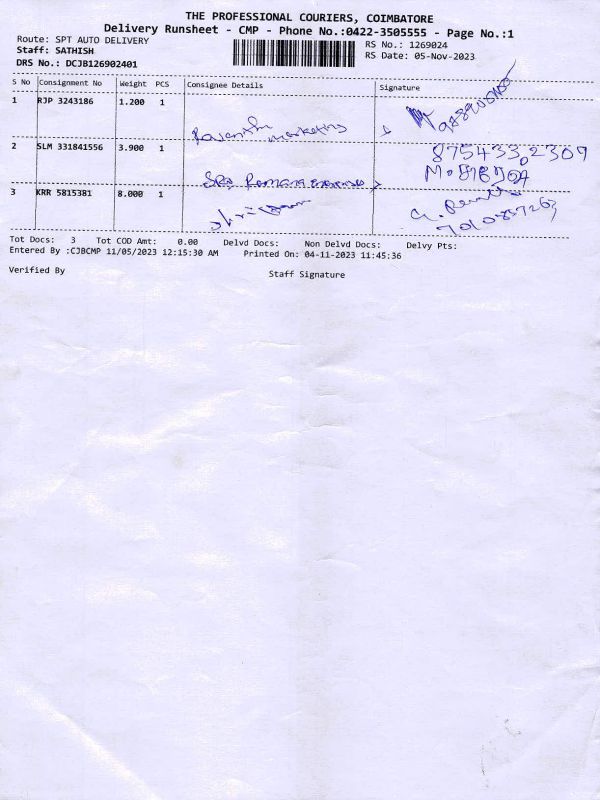 THE PROFESSIONAL COURIERS, COIMBATORE
Delivery Runsheet - CMP - Phone No.:0422-3505555 - Page No.:1
Route: SPT AUTO DELIVERY
RS No.: 1269024
Staff: SATHISH
RS Date: 05-Nov-2023
DRS No.: DCJB126902401
S No Consignment No Weight PCS Consignee Details Signature
1 RJP 3243186 1.200 1
marketing
2 SLM 331841556 3.900 1
875433,2309
3 KRR 5815381 8.000 1
Tot Docs: 3 Tot COD Amt: 0.00 Delvd Docs: Non Delvd Docs: Delvy Pts:
Entered By :CJBCMP 11/05/2023 12:15:30 AM Printed On: 04-11-2023 11:45:36
Verified By
Staff Signature